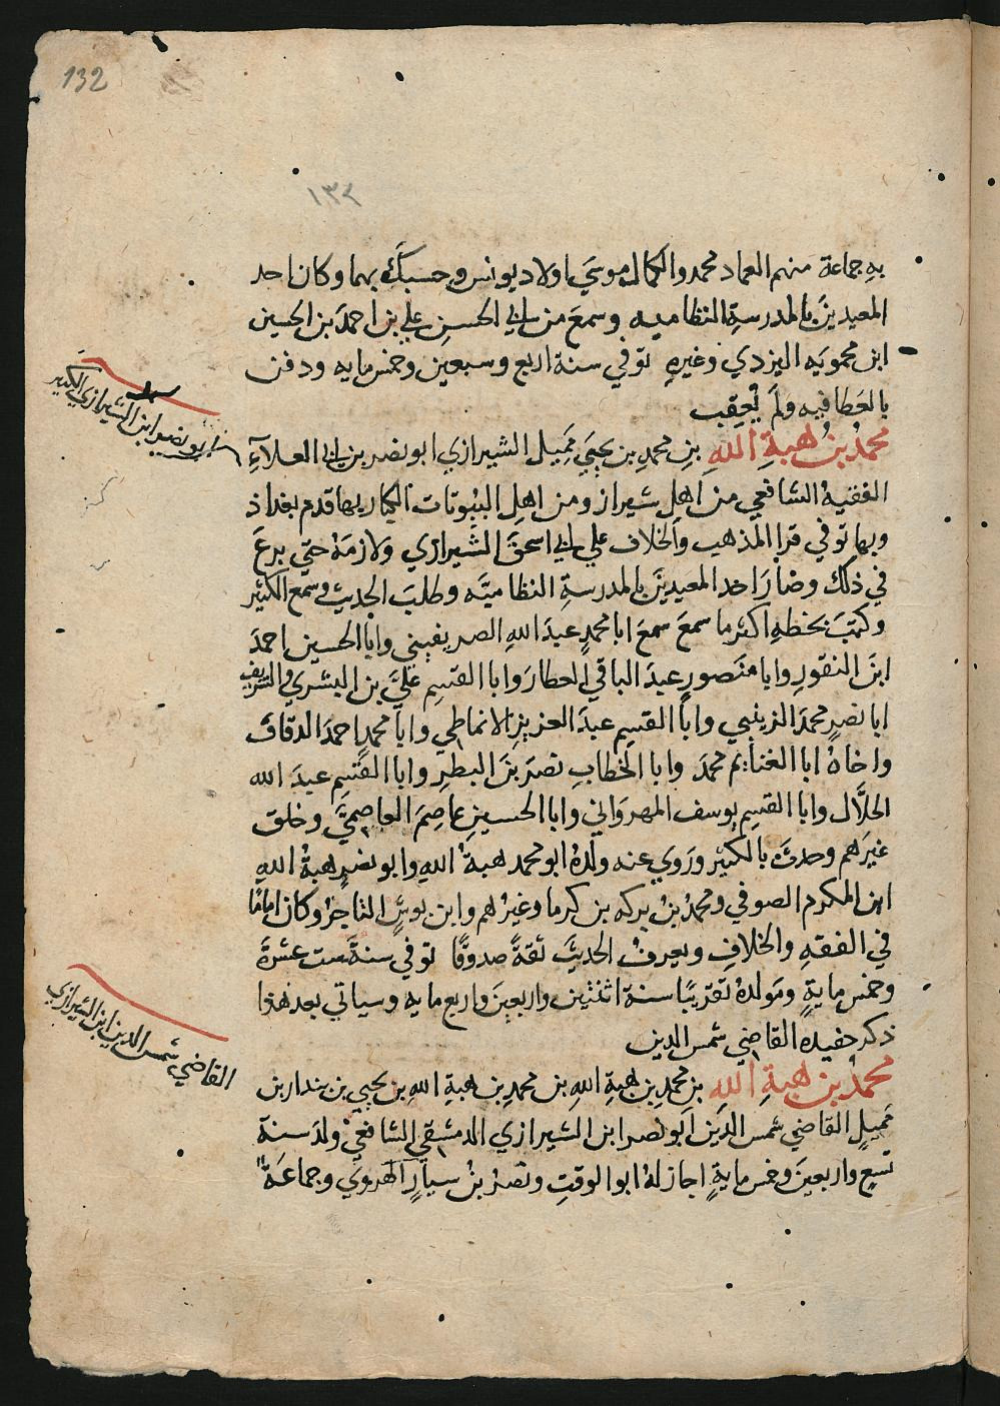 132
١٣٢
به جماعة منهم العماد محمد والكمال موسي اولاد يونس وحسبك بهما وكان احد
المعيدين بالمدرسة النظاميه وسمع من ابي الحسن علي بن احمد بن الحسين
ابن محمويه اليزدي وغيره توفي سنة اربع وسبعين وخمس مايه ودفن
بالعطافيه ولم يُعقِب
محمد بن هبة الله بن محمد بن يحيى مَمِيل الشيرازي ابو نصر بن ابي العلاء
الفقيه الشافعي من اهل شيراز ومن اهل البيوتات الكبار بها قدم بغداد
وبها توفي قرا المذهب والخلاف علي ابي اسحق الشيرازي ولازمه حتي برع
في ذلك وصار احد المعيدين بالمدرسة النظاميَّه وطلب الحديث وسمع الكثير
وكتب بخطه اكثر ما سمع سمع ابا محمدٍ عبد الله الصريفيني وابا الحسين احمد
ابن النقور وابا منصورٍ عبد الباقي العطار وابا القسم عليَّ بن البسري والشريف
ابا نصرٍ محمد الزينبي وابا القسم عبد العزيز الانماطي وابا محمدٍ احمد الدقاق
واخاهُ ابا الغنايم محمد وابا الخطاب نصر بن البطر وابا القسم عبد الله
الخلَّال وابا القسم يوسف المهرواني وابا الحسين عاصم العاصميَّ وخلق
غيرهم وحدث بالكثير وروي عنه ولدهُ ابو محمد هبة الله وابو نصرٍ هبة الله
ابن المكرم الصوفي ومحمد بن بركه بن كرما وغيرهم وابن بوش التاجر وكان اماما
في الفقه والخلاف ويعرف الحديث ثقةً صدوقًا توفي سنة ست عشرة
وخمس مايةٍ ومولده تقريبًا سنة اثنتين واربعين واربع مايه وسياتي بعد هذا
ذكر حفيده القاضي شمس الدين
محمد بن هبة الله بن محمد بن هبة الله بن محمد بن هبة الله بن يحيي بن بندار بن
مَمِيل القاضي شمس الدين ابو نصر ابن الشيرازي الدمشقي الشافعي ولد سنة
تسع واربعين وخمس مايةٍ اجاز له ابو الوقت ونصر بن سيار الهروي وجماعة
ابو نصر ابن الشيرازي الكبير
القاضي شمس الدين ابن الشيرازي